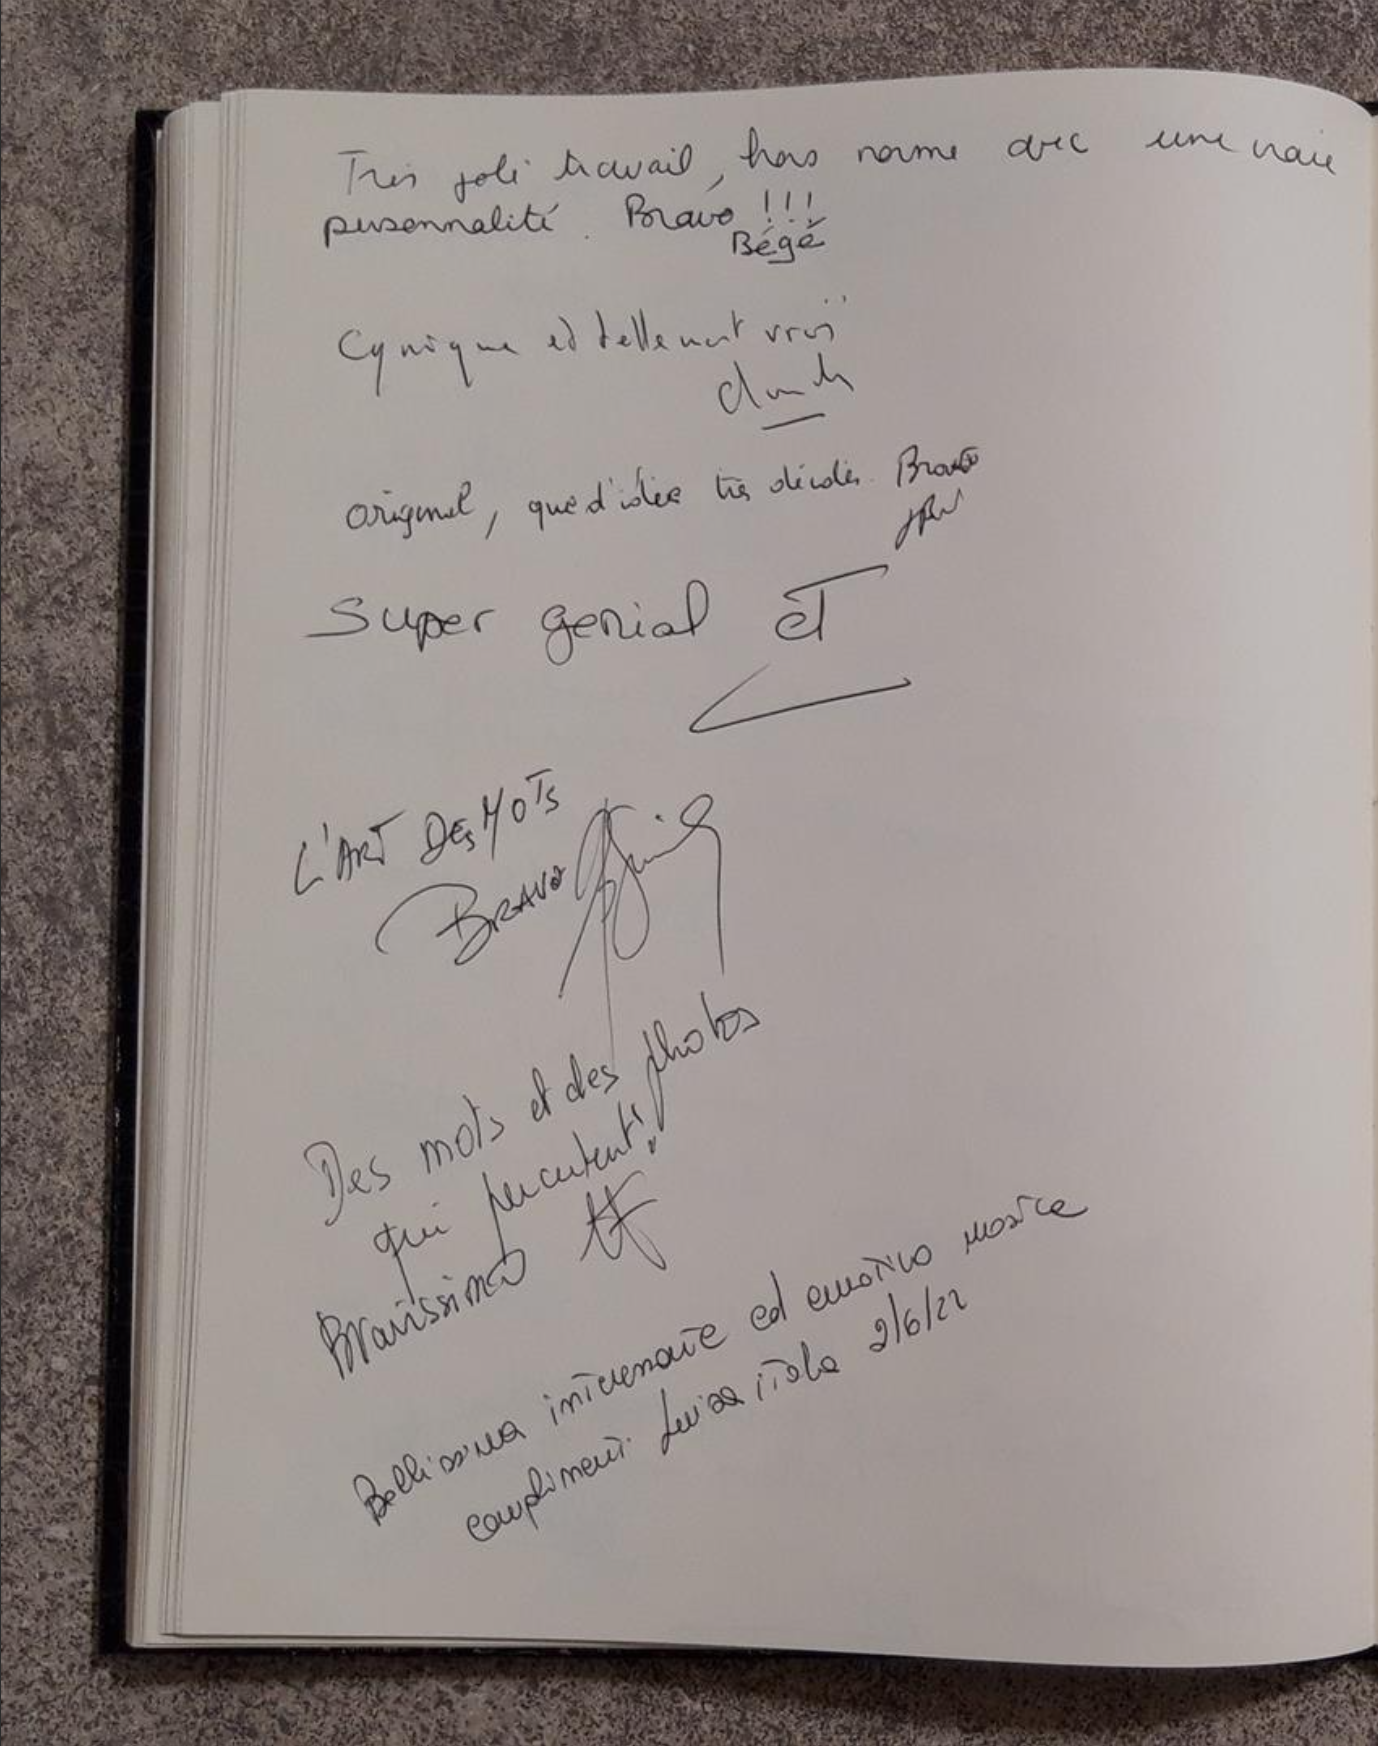 Très joli travail, hors norme avec une vraie
personnalité. Bravo !!!
Bégé
Cynique et tellement vrai
original, que d'idées très décalés. Bravo
Super genial et
L'ART DES MOTS
BRAVO
Des mots et des photos
qui percutent !
Bravissimo
Bellissima interessante ed emotiva mostra
complimenti Luisa 2/6/22